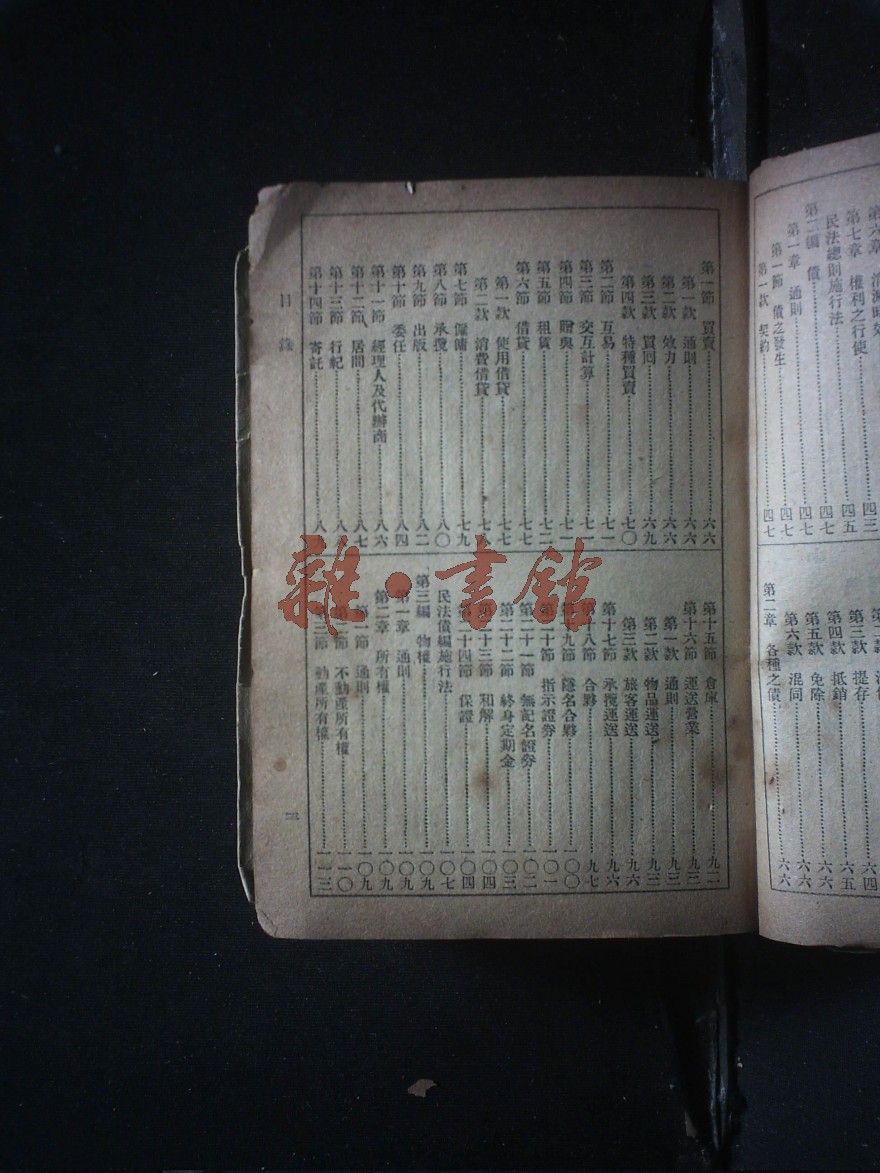 第七章 權利之行使……四三
民法總則施行法……四五
第二編 債……四七
第一章 通則……四七
第一節 債之發生……四七
第一款 契約……四七
第三款 提存……六四
第四款 抵銷……六五
第五款 免除……六六
第六款 混同……六六
第二章 各種之債……六六
第一節 買賣……六六
第一款 通則……六六
第二款 效力……六六
第三款 買回……六九
第四款 特種買賣……七〇
第二節 互易……七一
第三節 交互計算……七一
第四節 贈與……七一
第五節 租賃……七二
第六節 借貸……七七
第一款 使用借貸……七七
第二款 消費借貸……七八
第七節 僱傭……七九
第八節 承攬……八〇
第九節 出版……八二
第十節 委任……八四
第十一節 經理人及代辦商……八六
第十二節 居間……八七
第十三節 行紀……八
第十四節 寄託……八
第十五節 倉庫……九二
第十六節 運送營業……九三
第一款 通則……九三
第二款 物品運送……九三
第三款 旅客運送……九六
第十七節 承攬運送……九六
第十八節 合夥……九七
第十九節 隱名合夥……一〇〇
第二十節 指示證券……一〇一
第二十一節 無記名證券……一〇二
第二十二節 終身定期金……一〇三
第二十三節 和解……一〇四
第二十四節 保證……一〇四
民法債編施行法……一〇七
第三編 物權……一〇九
第一章 通則……一〇九
第二章 所有權……一〇九
第一節 通則……一〇九
第二節 不動產所有權……一一〇
第三節 動產所有權……一一三
目錄
三
雜·書館